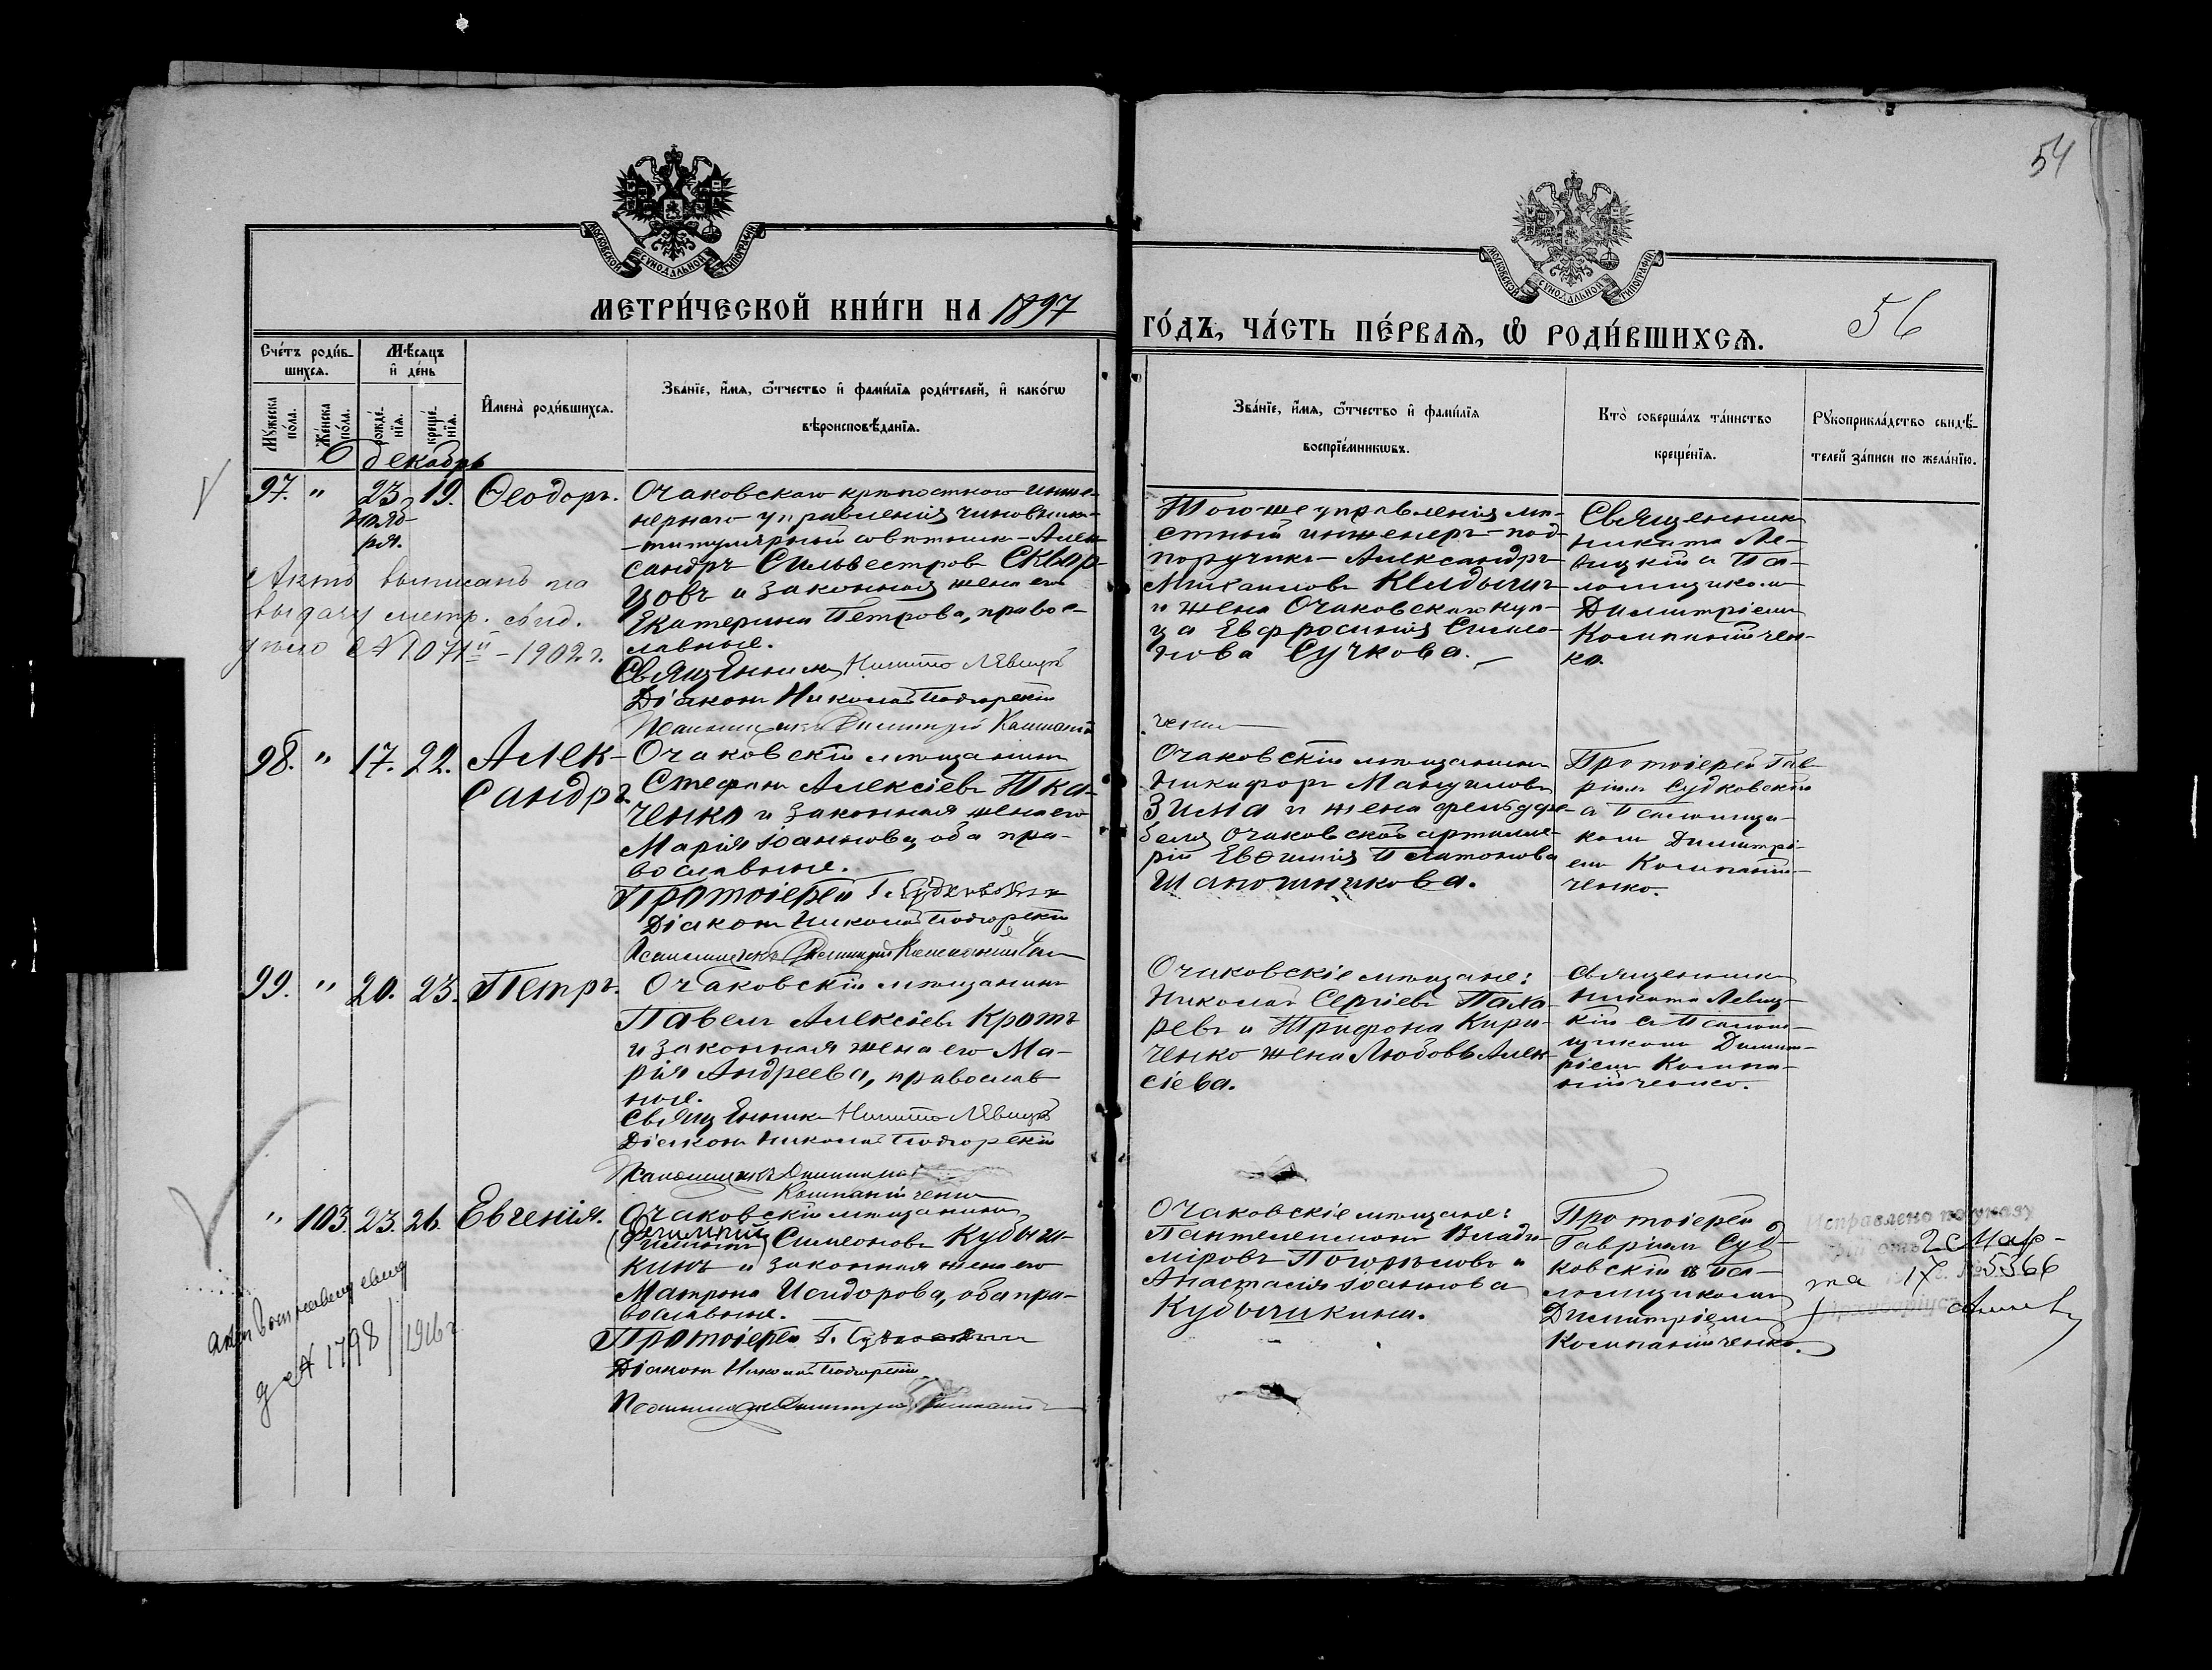 54
МОСКОВСКОЙ СУНОДАЛЬНОЙ ТИПОГРАФИИ
МОСКОВСКОЙ СУНОДАЛЬНОЙ ТИПОГРАФИИ
МЕТРИ́ЧЕСКОЙ КНИ́ГИ НА 1897
ГО́ДЪ, ЧА́СТЬ ПЕ́РВАѦ, Ѽ РОДИ́ВШИХСѦ.
56
Сче́тъ роди́в-
шихсѧ.
Мѣ́сѧцъ
и҆ де́нь
Мꙋ́жеска
по́ла.
Же́нска
по́ла.
рожде́-
нїѧ.
креще́-
нїѧ.
И҆мена̀ роди́вшихсѧ.
Зва́нїе, и҆́мѧ, ѻ҆́тчество и҆ фами́лїѧ роди́телей, и҆ како́гѡ
вѣроисповѣ́данїѧ.
Зва́нїе, и҆́мѧ, ѻ҆́тчество и҆ фами́лїѧ
воспрїе́мникѡвъ.
Кто̀ соверша́лъ та́инство
креще́нїѧ.
Рꙋкоприкла́дство свидѣ́-
телей за́писи по жела́нїю.
декабрь
97. " 23 19. Ѳеодоръ.
нояб-
ря.
Очаковскаго крѣпостного инже-
нернаго управленія чиновникъ-
-титулярный совѣтникъ-Алек-
сандръ Сильвестровъ Сквор-
цовъ и законная жена его
Екатерина Петрова, право-
славные.
Священникъ Никита Левицкій
Діаконъ Николай Подгорскій
Псаломщикъ Димитрій Компаній
ченко
Того-же управленія мѣ-
стный инженеръ-под-
поручикъ-Александръ
Михаиловъ Клидычъ
и жена Очаковскаго куп-
ца Евфросинія Симео-
нова Сучкова.
Священникъ
Никита Ле-
вицкій и Пса-
ломщикомъ
Димитріемъ
Компанійчен-
ко.
Актъ выписанъ на
выдачу метр. свид.
1902 г.
98. " 17. 22. Алек-
сандръ.
Очаковскій мѣщанинъ
Стефанъ Алексіевъ Тка-
ченко и законная жена его
Марія Іоаннова, оба пра-
вославные.
Протоіерей Г. Судковскій
Діаконъ Николай Подгорскій
Псаломщикъ Димитрій Компанійченко
Очаковскій мѣщанинъ
Никифоръ Мануиловъ
Зима и жена фельдфе-
беля Очаковской артилле-
ріи Евѳимія Платонова
Шапошникова.
Протоіерей Гав-
ріилъ Судковскій
а Псаломщи-
комъ Димитрі-
емъ Компаній-
ченко.
99. " 20. 23. Петръ.
Очаковскій мѣщанинъ
Павелъ Алексіевъ Кротъ
и законная жена его Ма-
рія Андреева, православ
ные.
Священникъ Никита Левицкій
Діаконъ Николай Подгорскій
Псаломщикъ Димитрій
Компанійченко
Очаковскіе мѣщане:
Николай Сергіевъ Пала-
ревъ и Трифона Кири-
ченко жена Любовь Алек-
сіева.
Священникъ
Никита Левиц-
кій с Псалом-
щикомъ Димит-
ріемъ Компа-
нійченко.
" 103. 23. 26. Евгенія.
Очаковскій мѣщанинъ
Симеоновъ Кубыш-
кинъ и законная жена его
Матрона Исидорова, оба пра-
вославные.
Протоіерей Г. Судковскій
Діаконъ Николай Подгорскій
Псаломщикъ Димитрій Компаній
Очаковскіе мѣщане:
Пантелеимонъ Влади-
міровъ Погорѣловъ и
Анастасія Іоаннова
Кубышкина.
Протоіерей
Гавріилъ Суд-
ковскій и Пса-
ломщикомъ
Димитріемъ
Компанійченко.
Исправлено по указу
2 Мар-
та 17 № 5366
№ 1798/1916 г